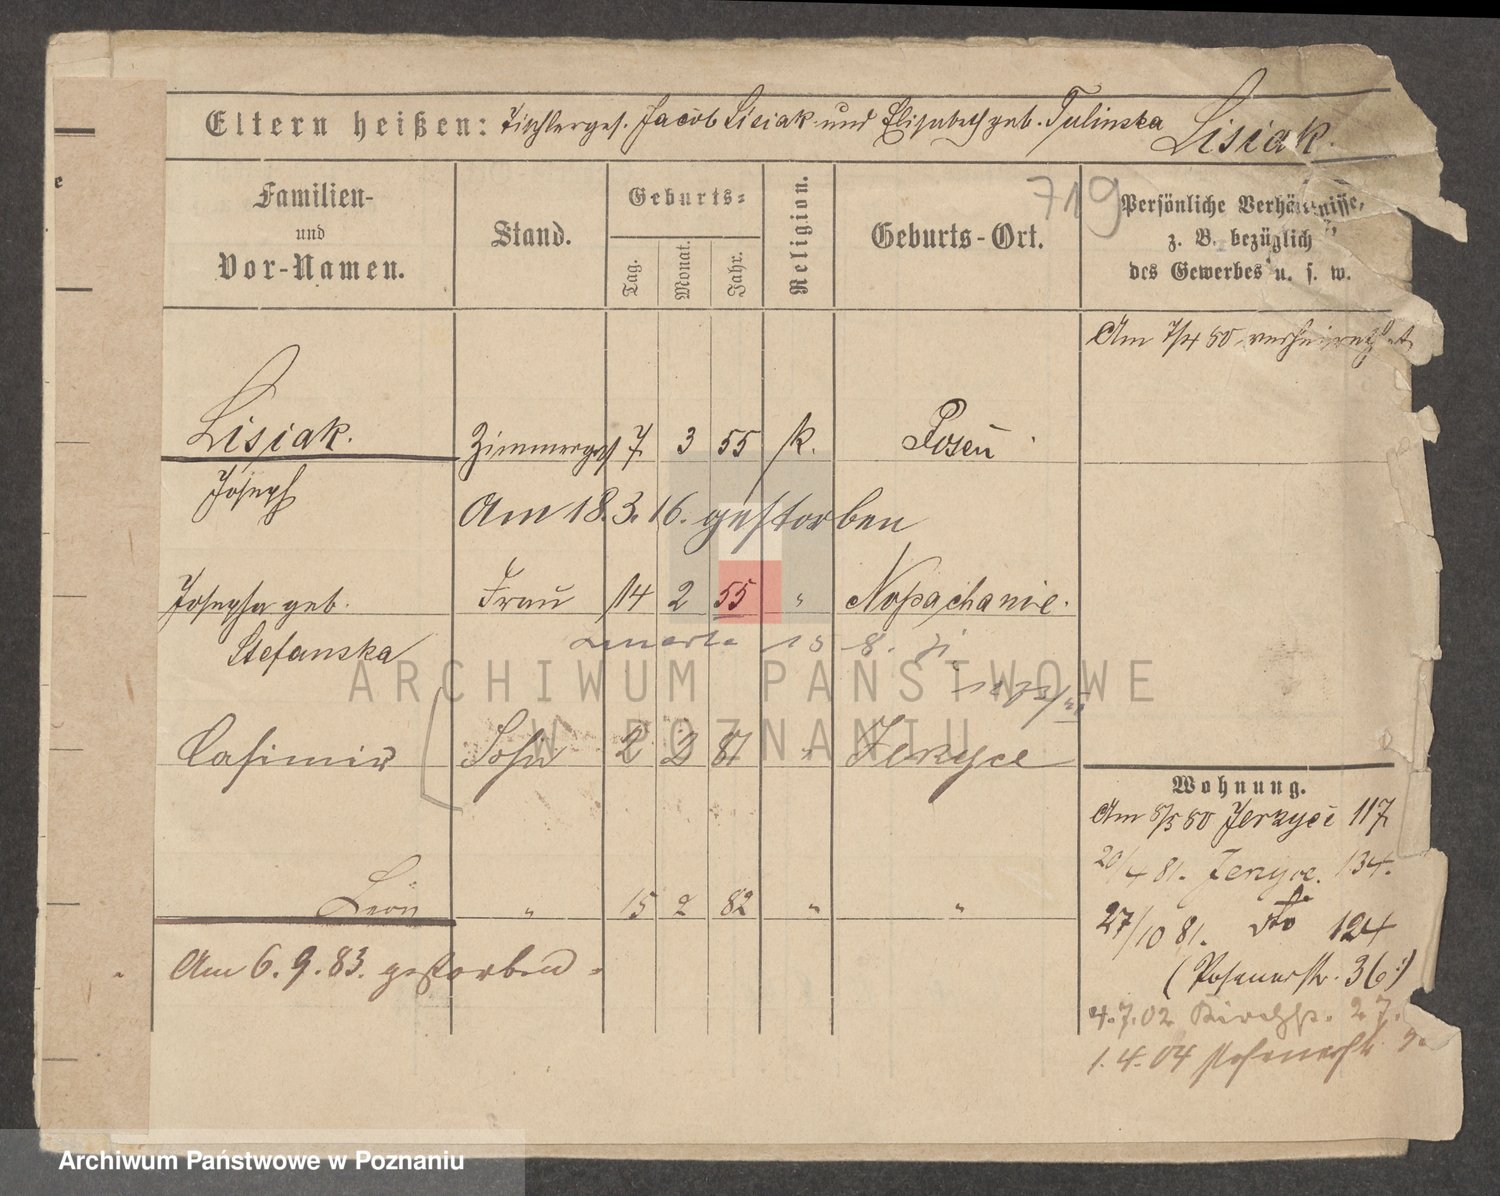 Eltern heißen: Tischlerges. Jacob Lisiak und Elisabeth geb. Tulinska Lisiak.
719
Familien- und Vor-Namen.
Stand.
Geburts=
Tag.
Monat.
Jahr.
Religion.
Geburts-Ort.
Persönliche Verhältnisse,
z. B. bezüglich
des Gewerbes u. s. w.
Am 7/4 80 verheirathet
Lisiak. Zimmerges 7 3 55 k. Posen
Joseph
Am 18.3.16. gestorben
Josepha geb. Frau 14 2 55 " Napachanie.
Stefanska
umarła 15 8.
Casimir Sohn 2 3 81 " Jerzyce
Leon " 15 2 82 " "
Am 6.9.83. gestorben.
Wohnung.
Am 8/3 80 Jerzyce 117
20/4 81. Jerzyce. 134.
27/10 81. dto 124
(Posenerstr. 36)
4.7.02 Kirchstr. 27.
1.4.04 Posenerstr.
ARCHIWUM PAŃSTWOWE
W POZNANIU
Archiwum Państwowe w Poznaniu